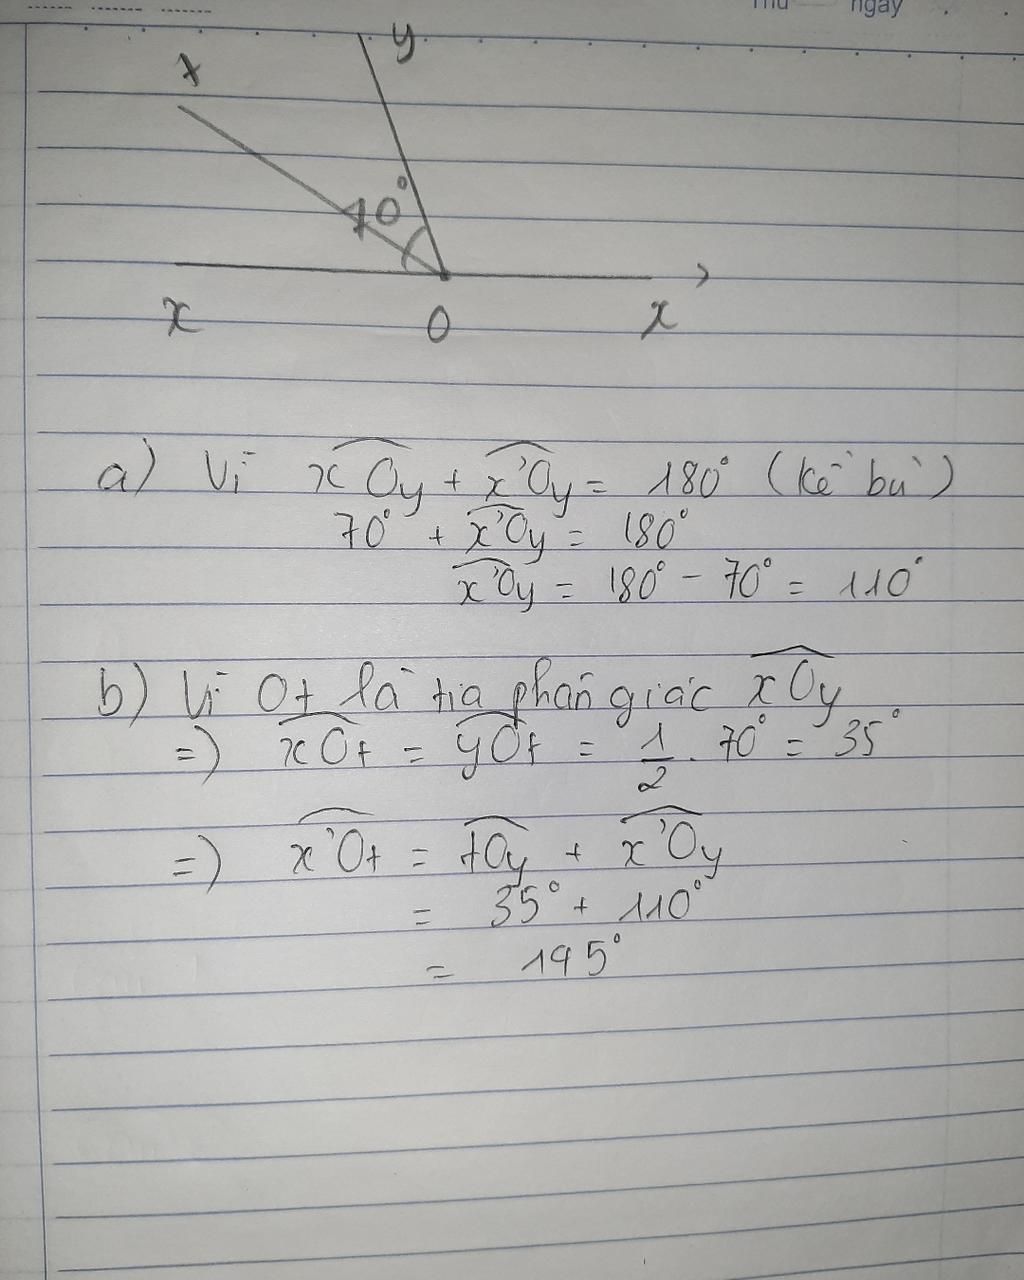 Thứ ngày
y
t
70°
x O x
a) Vì xOy + x'Oy = 180° (kề bù)
70° + x'Oy = 180°
x'Oy = 180° - 70° = 110°
b) Vì Ot là tia phân giác xOy
=) xOt = yOt = 1/2 . 70° = 35°
=) x'Ot = tOy + x'Oy
= 35° + 110°
= 145°